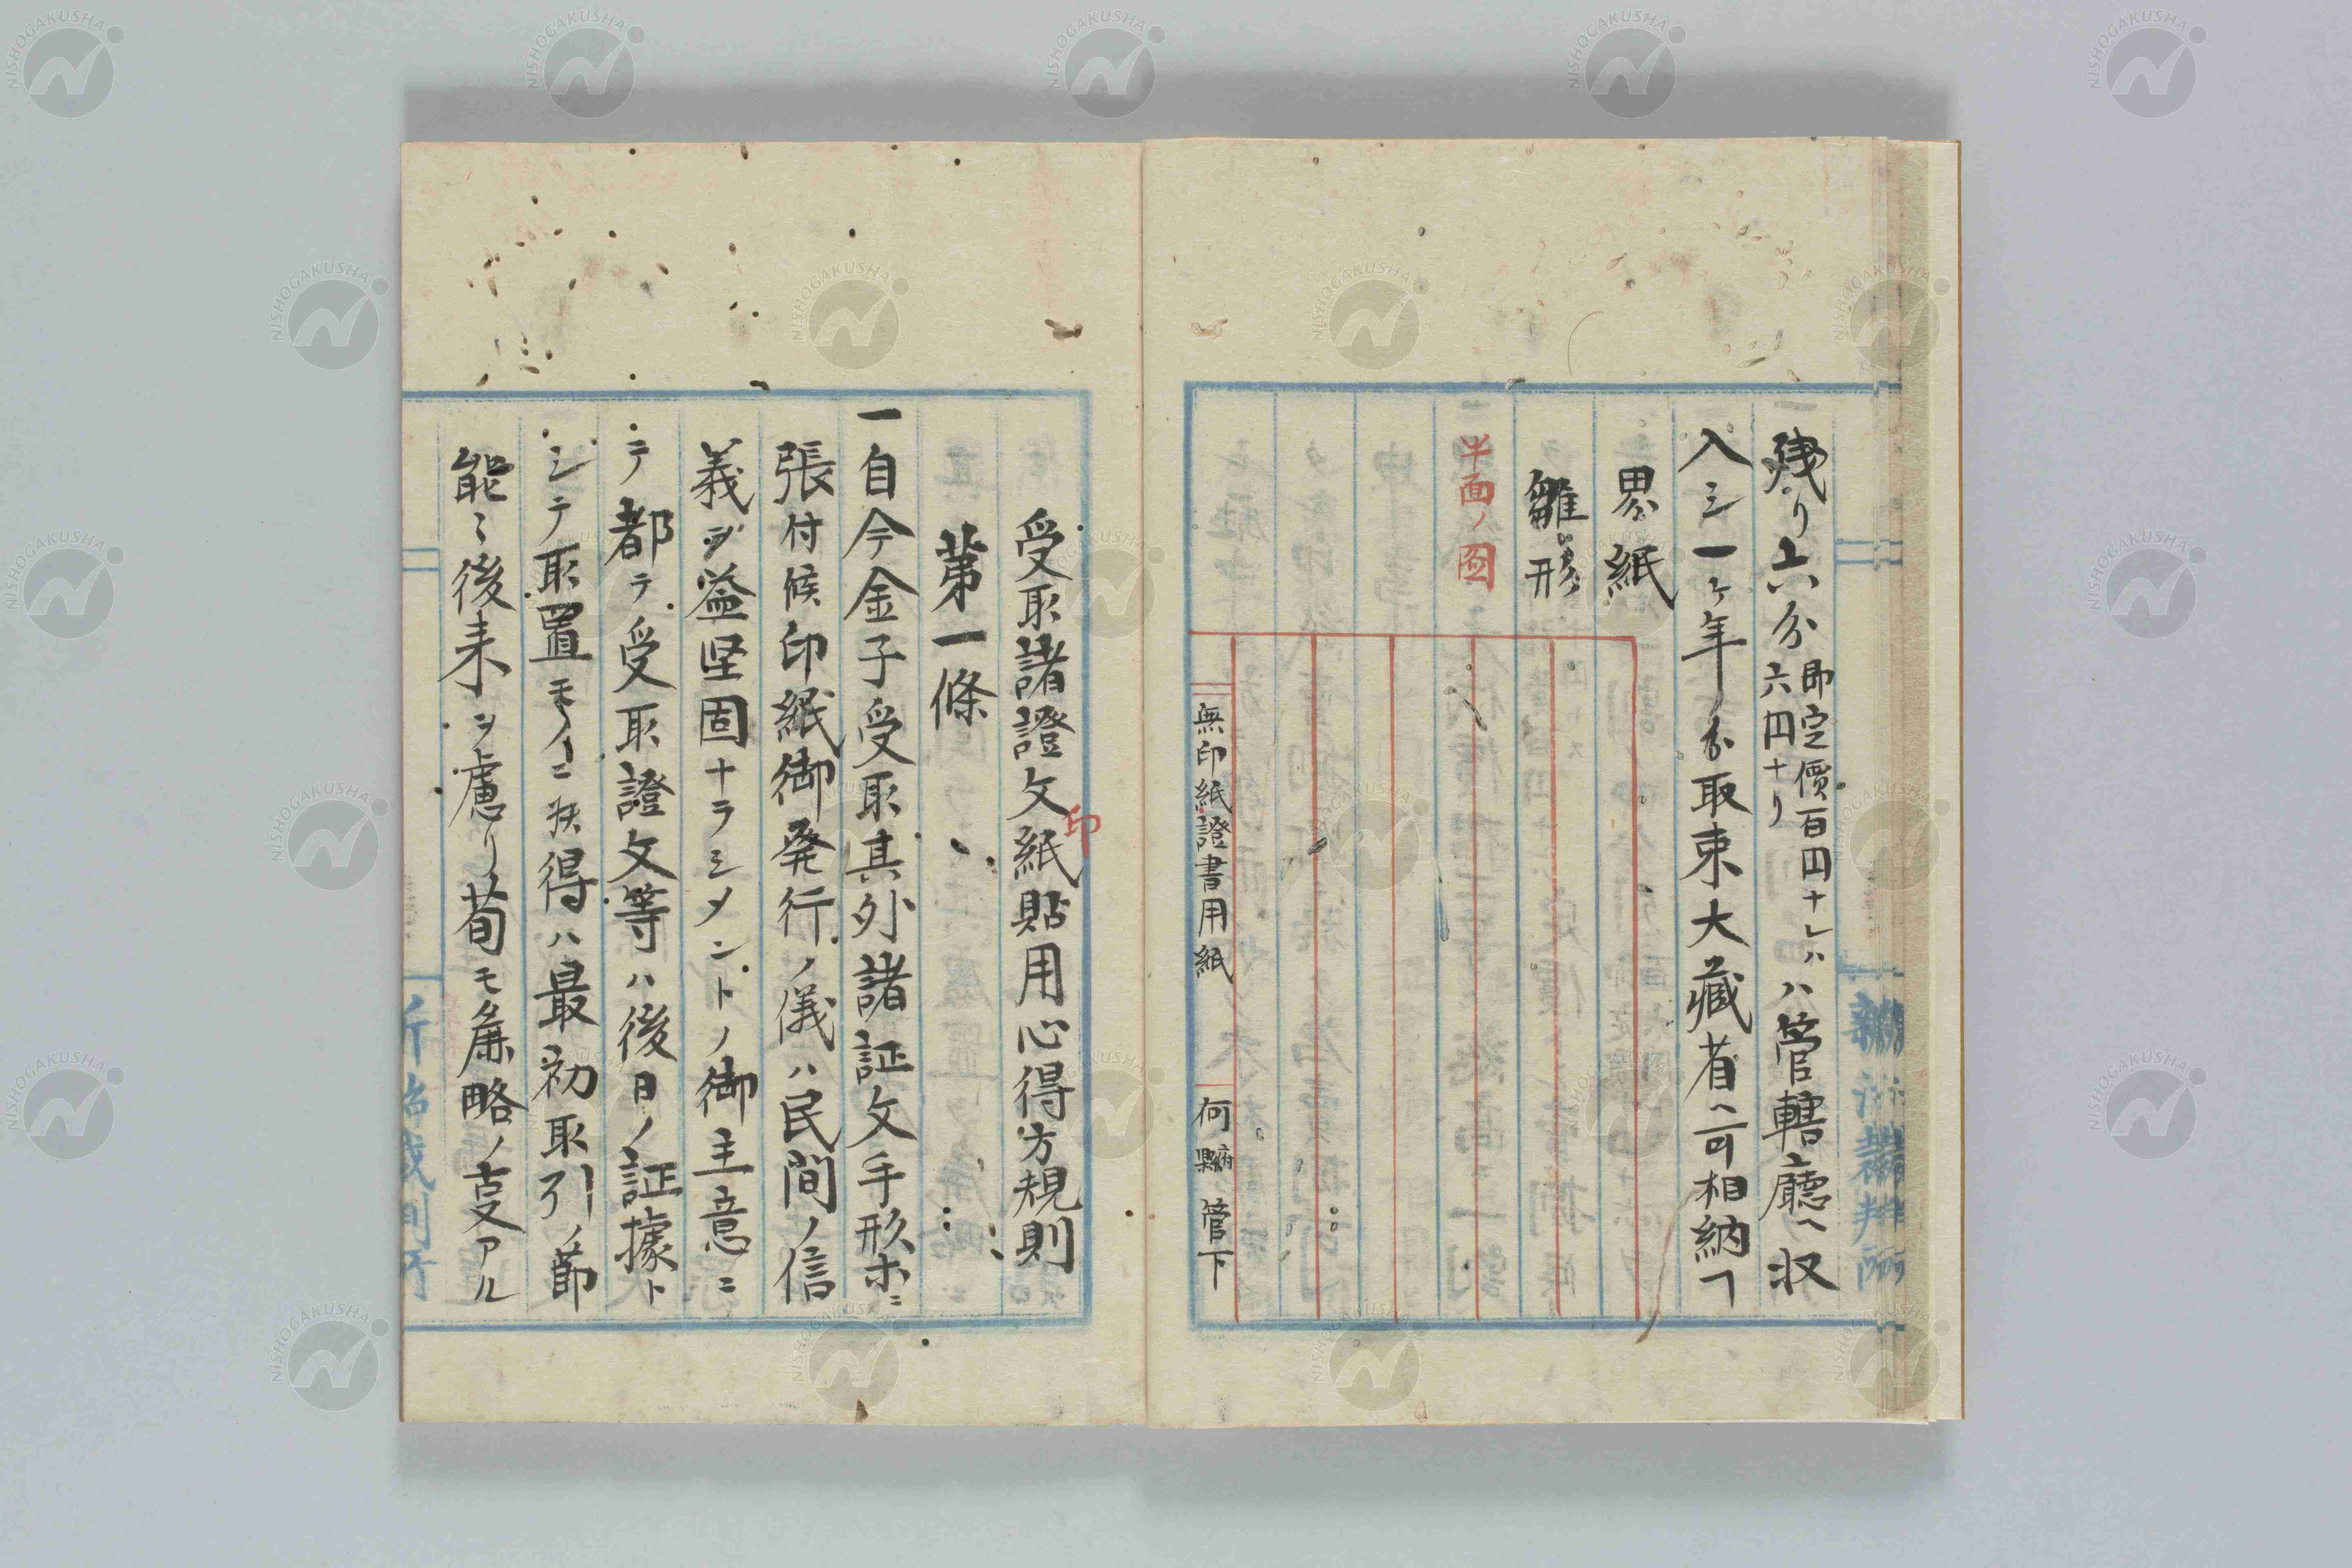 残リ六分
即定價百円ナレハ
六円ナリ
ハ管轄廳ヘ収
入シ一ヶ年ノ分取束大藏省ヘ可相納ヿ
界紙
雛形
半面ノ図
無印紙證書用紙
何 府縣 管下
受取諸證文紙貼用心得方規則
印
第一條
一自今金子受取其外諸証文手形ホニ
張付候印紙御発行ノ儀ハ民間ノ信
義ヲ益堅固ナラシメントノ御主意ニ
テ都テ受取證文等ハ後日ノ証據ト
シテ取置モノニ候得ハ最初取引ノ節
能ミ後来ヲ慮リ苟モ麁略ノ㕝アル
NISHOGAKUSHA